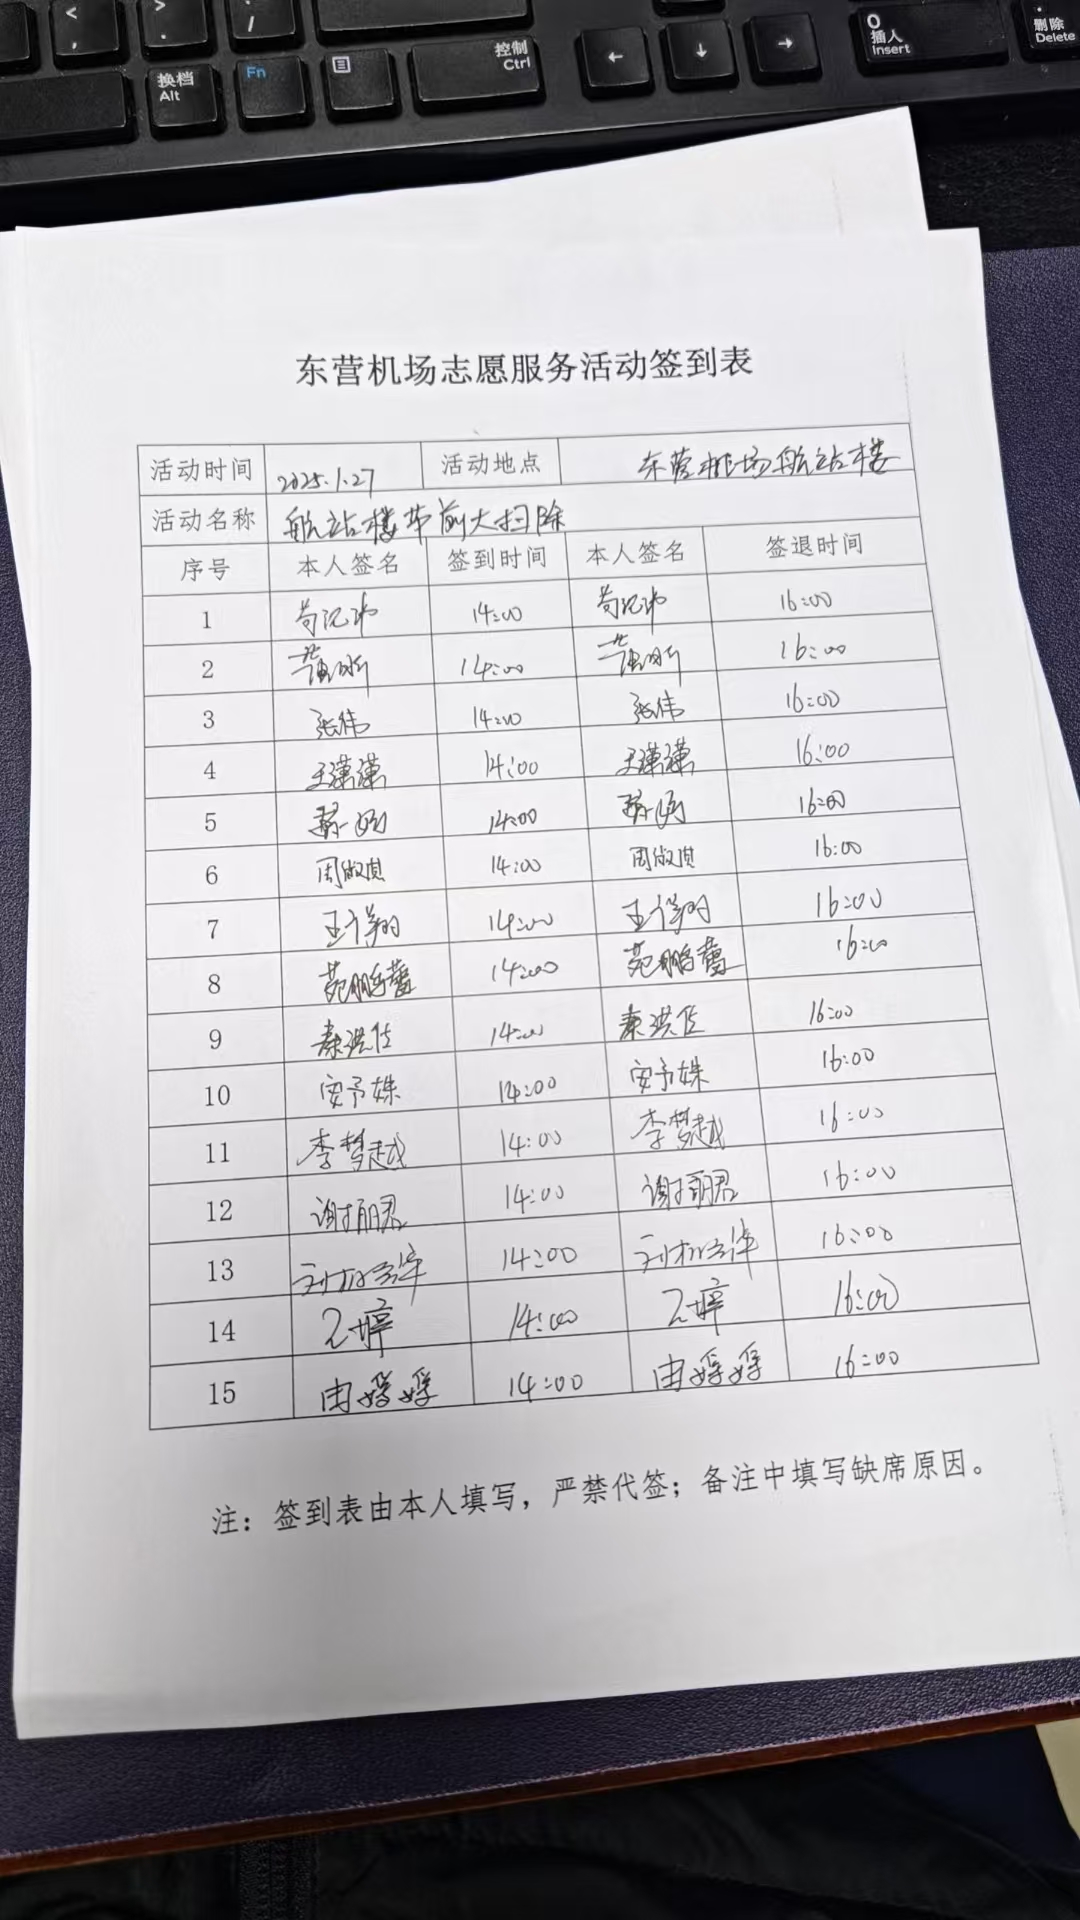 < ,
> .
/
换档 Alt
Fn
控制 Ctrl
←
↓
→
0 插入 Insert
. 删除 Delete
东营机场志愿服务活动签到表
活动时间 2025.1.27 活动地点 东营机场航站楼
活动名称 航站楼节前大扫除
序号 本人签名 签到时间 本人签名 签退时间
1 14:00 16:00
2 14:00 16:00
3 张伟 14:00 张伟 16:00
4 王潇潇 14:00 王潇潇 16:00
5 14:00 16:00
6 周淑琪 14:00 周淑琪 16:00
7 王许翔 14:00 王许翔 16:00
8 苑鹏蕾 14:00 苑鹏蕾 16:00
9 秦洪佐 14:00 秦洪佐 16:00
10 安予姝 14:00 安予姝 16:00
11 李梦越 14:00 李梦越 16:00
12 谢丽君 14:00 谢丽君 16:00
13 14:00 16:00
14 14:00 16:00
15 由婷婷 14:00 由婷婷 16:00
注：签到表由本人填写，严禁代签；备注中填写缺席原因。